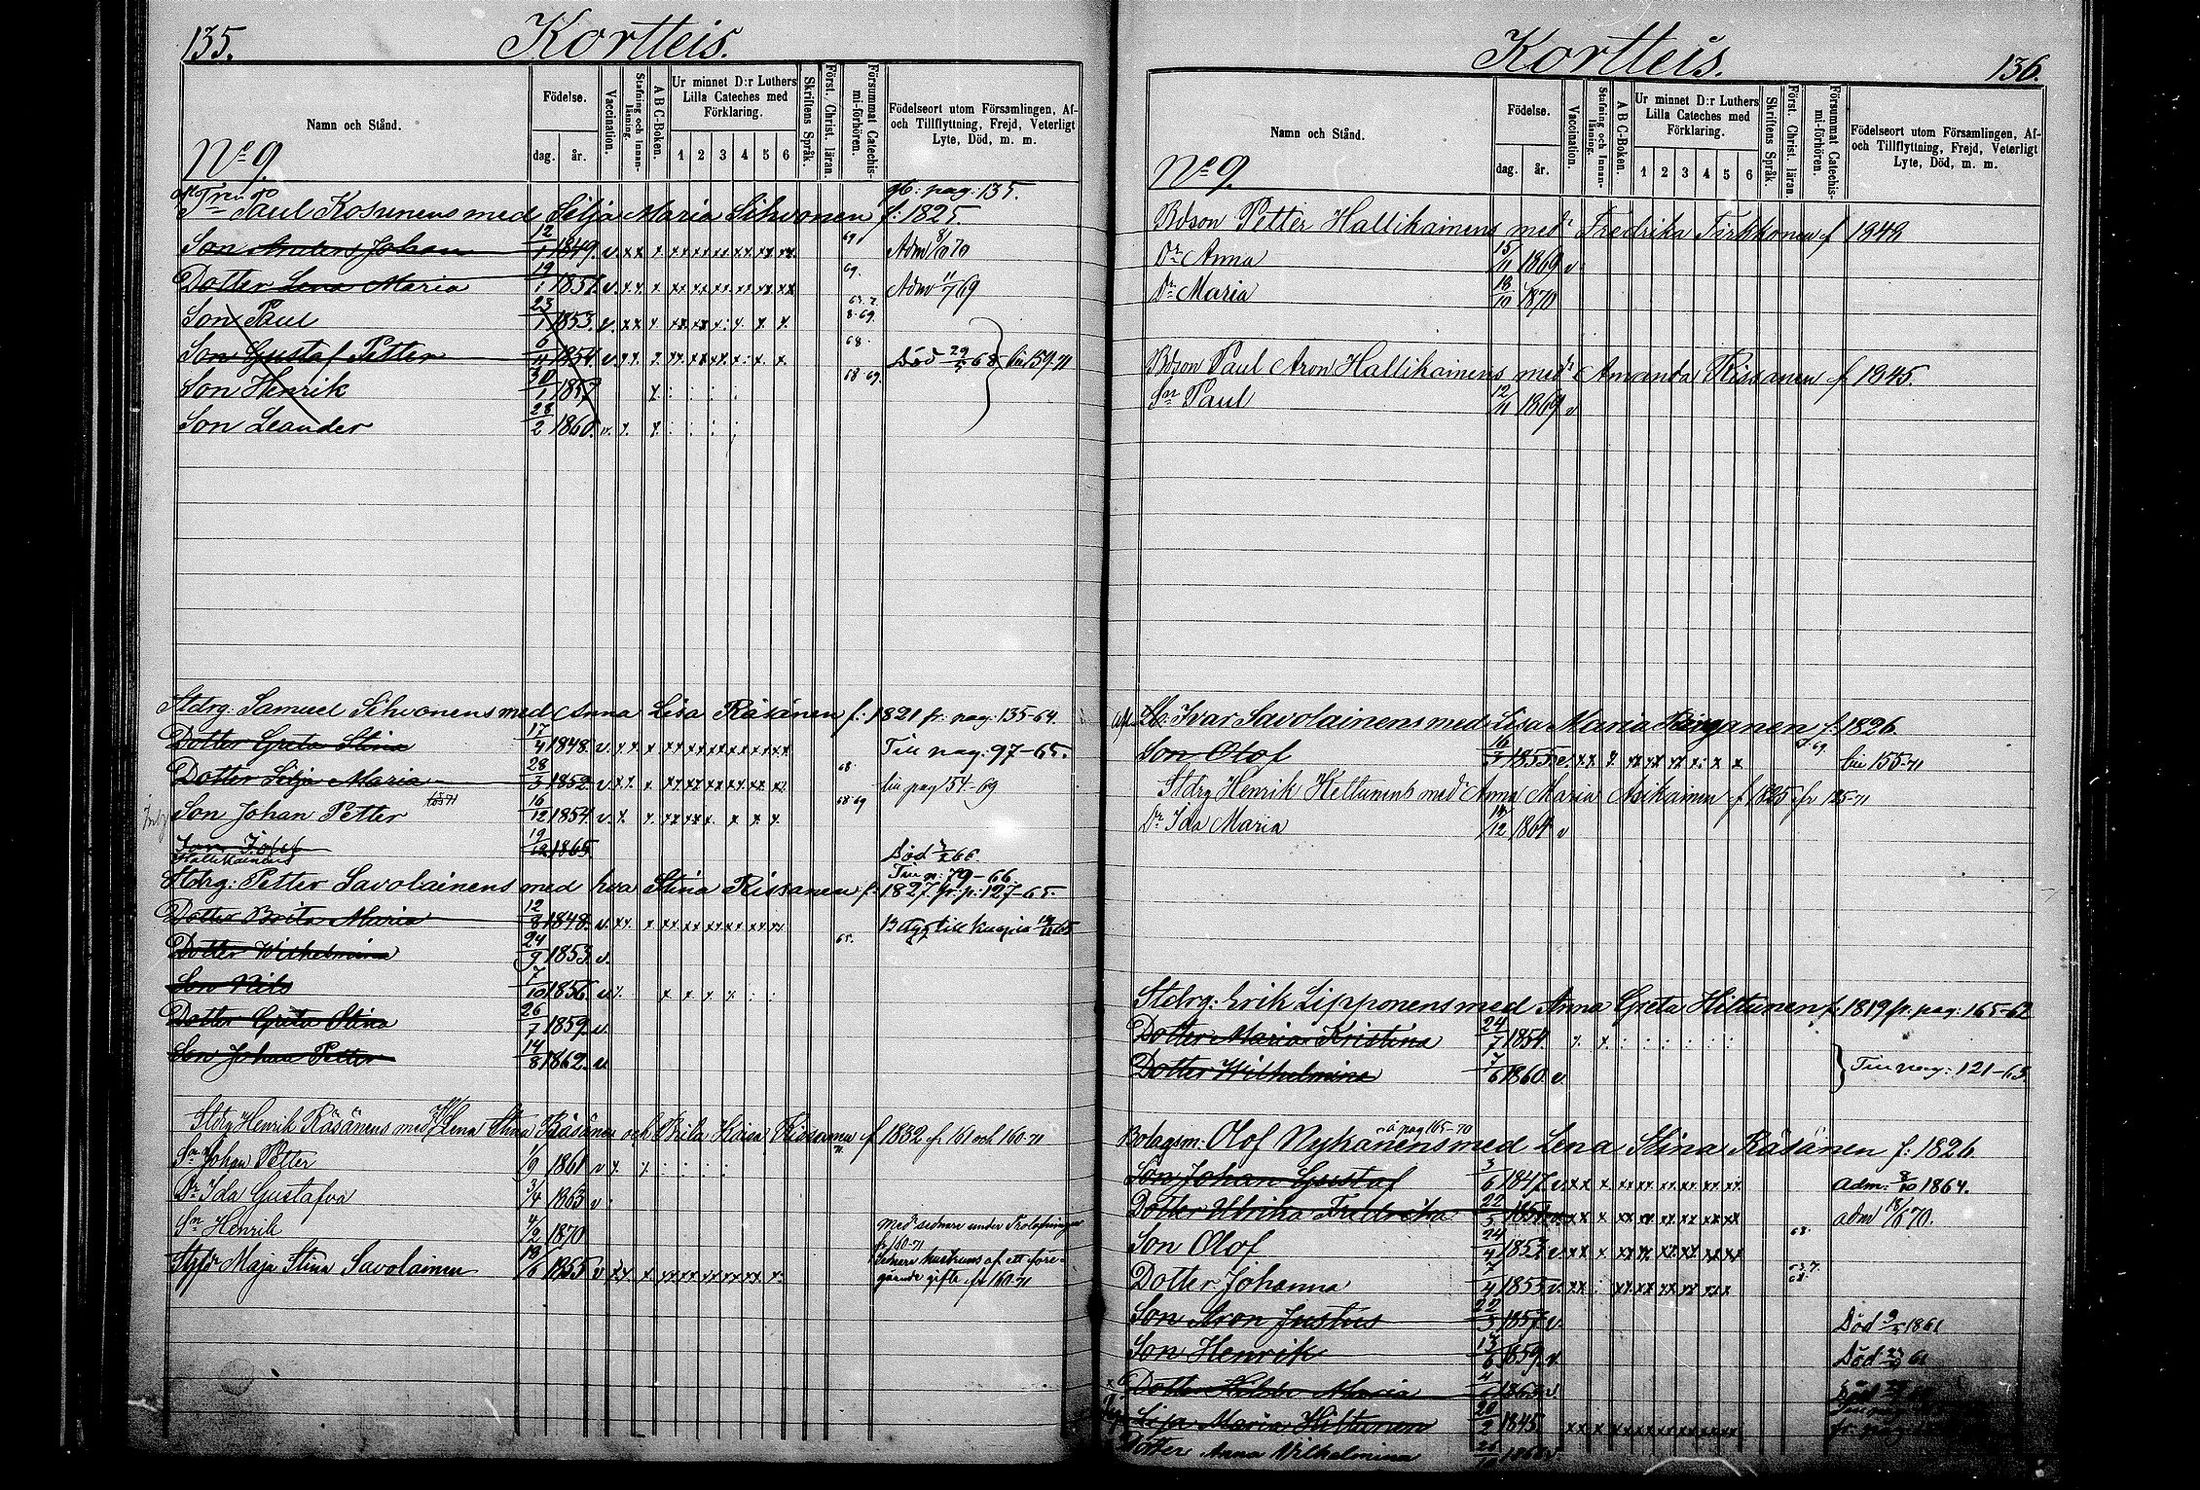 135.
Kortteis.
Namn och Stånd.
Födelse.
dag. år.
Vaccination.
Stafning och Innanläsning.
A B C-Boken.
Ur minnet D:r Luthers Lilla Cateches med Förklaring.
1 2 3 4 5 6
Skriftens Språk.
Först. Christ. läran.
Försummat Catechismi-förhören.
Födelseort utom Församlingen, Af- och Tillflyttning, Frejd, Veterligt Lyte, Död, m. m.
No 9.
Paul Kosunens med Silja Maria Sihvonen f: 1825. pag: 135.
Son Anders Johan 12/1 1849. v. 69 Adm 8/10 70
Dotter Lena Maria 19/1 1851. v. 69. Adm 11/1 69
Son Paul 23/1 1853. v.
Son Gustaf Petter 6/4 1854. v. 68. Död 29/5 68
Son Henrik 30/1 1857 68-69.
Son Leander 28/2 1860. v.
Stdrg: Samuel Sihvonens med Anna Lisa Räsänen f: 1821 fr. pag: 135-64.
Dotter Greta Stina 17/4 1848. v. Till pag: 97-65.
Dotter Silja Maria 28/3 1852. v. 68 pag 154-69
Son Johan Petter 16/12 1854 v. 68 69
Son Josef 19/12 1865. Död 66.
Hallikainens
Till p: 79-66.
Stdrg: Petter Savolainens med hva Stina Rissanen f: 1827. fr. p: 127-65.
Dotter Brita Maria 12/8 1848. v. Bagg till Kuopio
Dotter Wilhelmina 24/9 1853. v. 65.
Son Nils 7/10 1856. v.
Dotter Greta Stina 26/7 1859. v.
Son Johan Petter 14/8 1862. v.
Stdrg Henrik Räsänens med Lena Stina Räsänen och Brita Kaisa Rissanen f 1832 fr 161 och 160-71
Sn Johan Petter 1/9 1861 v
Dr Ida Gustafva 3/4 1863 v
Sn Henrik 4/2 1870
Med sednare under Trolofningen fr 160-71
Maja Stina Savolainen 13/6 1855 v
Senare hustruns af ett föregående gifte fr 160-71
Kortteis.
136.
Namn och Stånd.
Födelse.
dag. år.
Vaccination.
Stafning och Innanläsning.
A B C-Boken.
Ur minnet D:r Luthers Lilla Cateches med Förklaring.
1 2 3 4 5 6
Skriftens Språk.
Först. Christ. läran.
Försummat Catechismi-förhören.
Födelseort utom Församlingen, Af- och Tillflyttning, Frejd, Veterligt Lyte, Död, m. m.
No 9.
Bdson Petter Hallikainens med Fredrika Tirkkonen f 1848
Dr Anna 15/11 1869 v
Dr Maria 18/10 1870
Bdson Paul Aron Hallikainens med Amanda Rissanen f 1845.
Sn Paul 12/11 1869 v
Ivar Savolainens med Lisa Maria f: 1826.
Son Olof 16/7 1855. v. 155-71
Stdrg Henrik Hiltunens med Anna Maria Asikainen f 1825 fr 125-71
Dr Ida Maria 1864 v
Stdrg: Erik Lipponens med Anna Greta Hiltunen f: 1819 fr. pag: 165-62
Dotter Maria Kristina 24/7 1854.
Dotter Wilhelmina 7/6 1860. v. Till pag: 121-63
Bolagsm: Olof Nykänens med Lena Stina Räsänen f: 1826.
å pag 165-70
Son Johan Gustaf 3/6 1847. v. Adm: 8/10 1864.
Dotter Ulrika Fredrika 22/5 Adm 70.
Son Olof 24/4 1853 v. 68.
Dotter Johanna 7/4 1855. v.
Son Aron Justus 22/3 1857. v. Död 1861
Son Henrik 13/6 1859. v. Död 61
Dotter Maria
Maria Hiltunen 20/2 1845.
Dotter Anna Vilhelmina